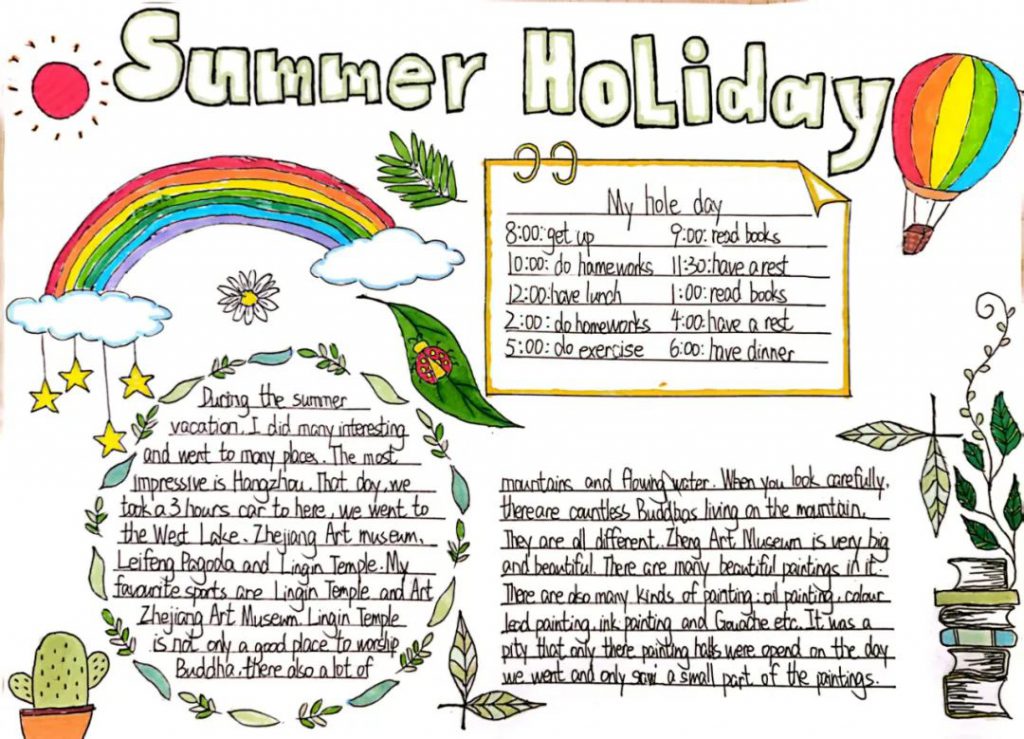 Summer Holiday
My hole day
8:00: get up 9:00: read books
10:00: do homeworks 11:30: have a rest
12:00: have lunch 1:00: read books
2:00: do homeworks 4:00: have a rest
5:00: do exercise 6:00: have dinner
During the summer
vacation, I did many interesting
and went to many places. The most
impressive is Hangzhou. That day, we
took a 3 hours car to here, we went to
the West Lake. Zhejiang Art museum,
Leifeng Pagoda and Lingin Temple. My
favourite sports are Lingin Temple and Art
Zhejiang Art Museum. Lingin Temple
is not only a good place to worship
Buddha, there also a lot of
mountains and flowing water. When you look carefully,
thereare countless Buddbas living on the mountain.
They are all different. Zheng Art Museum is very big
and beautiful. There are many beautiful paintings in it.
There are also many kinds of painting: oil painting, colour
lead painting, ink painting and Gouache etc. It was a
pity that only there painting halls were opend on the day
we went and only saw a small part of the paintings.